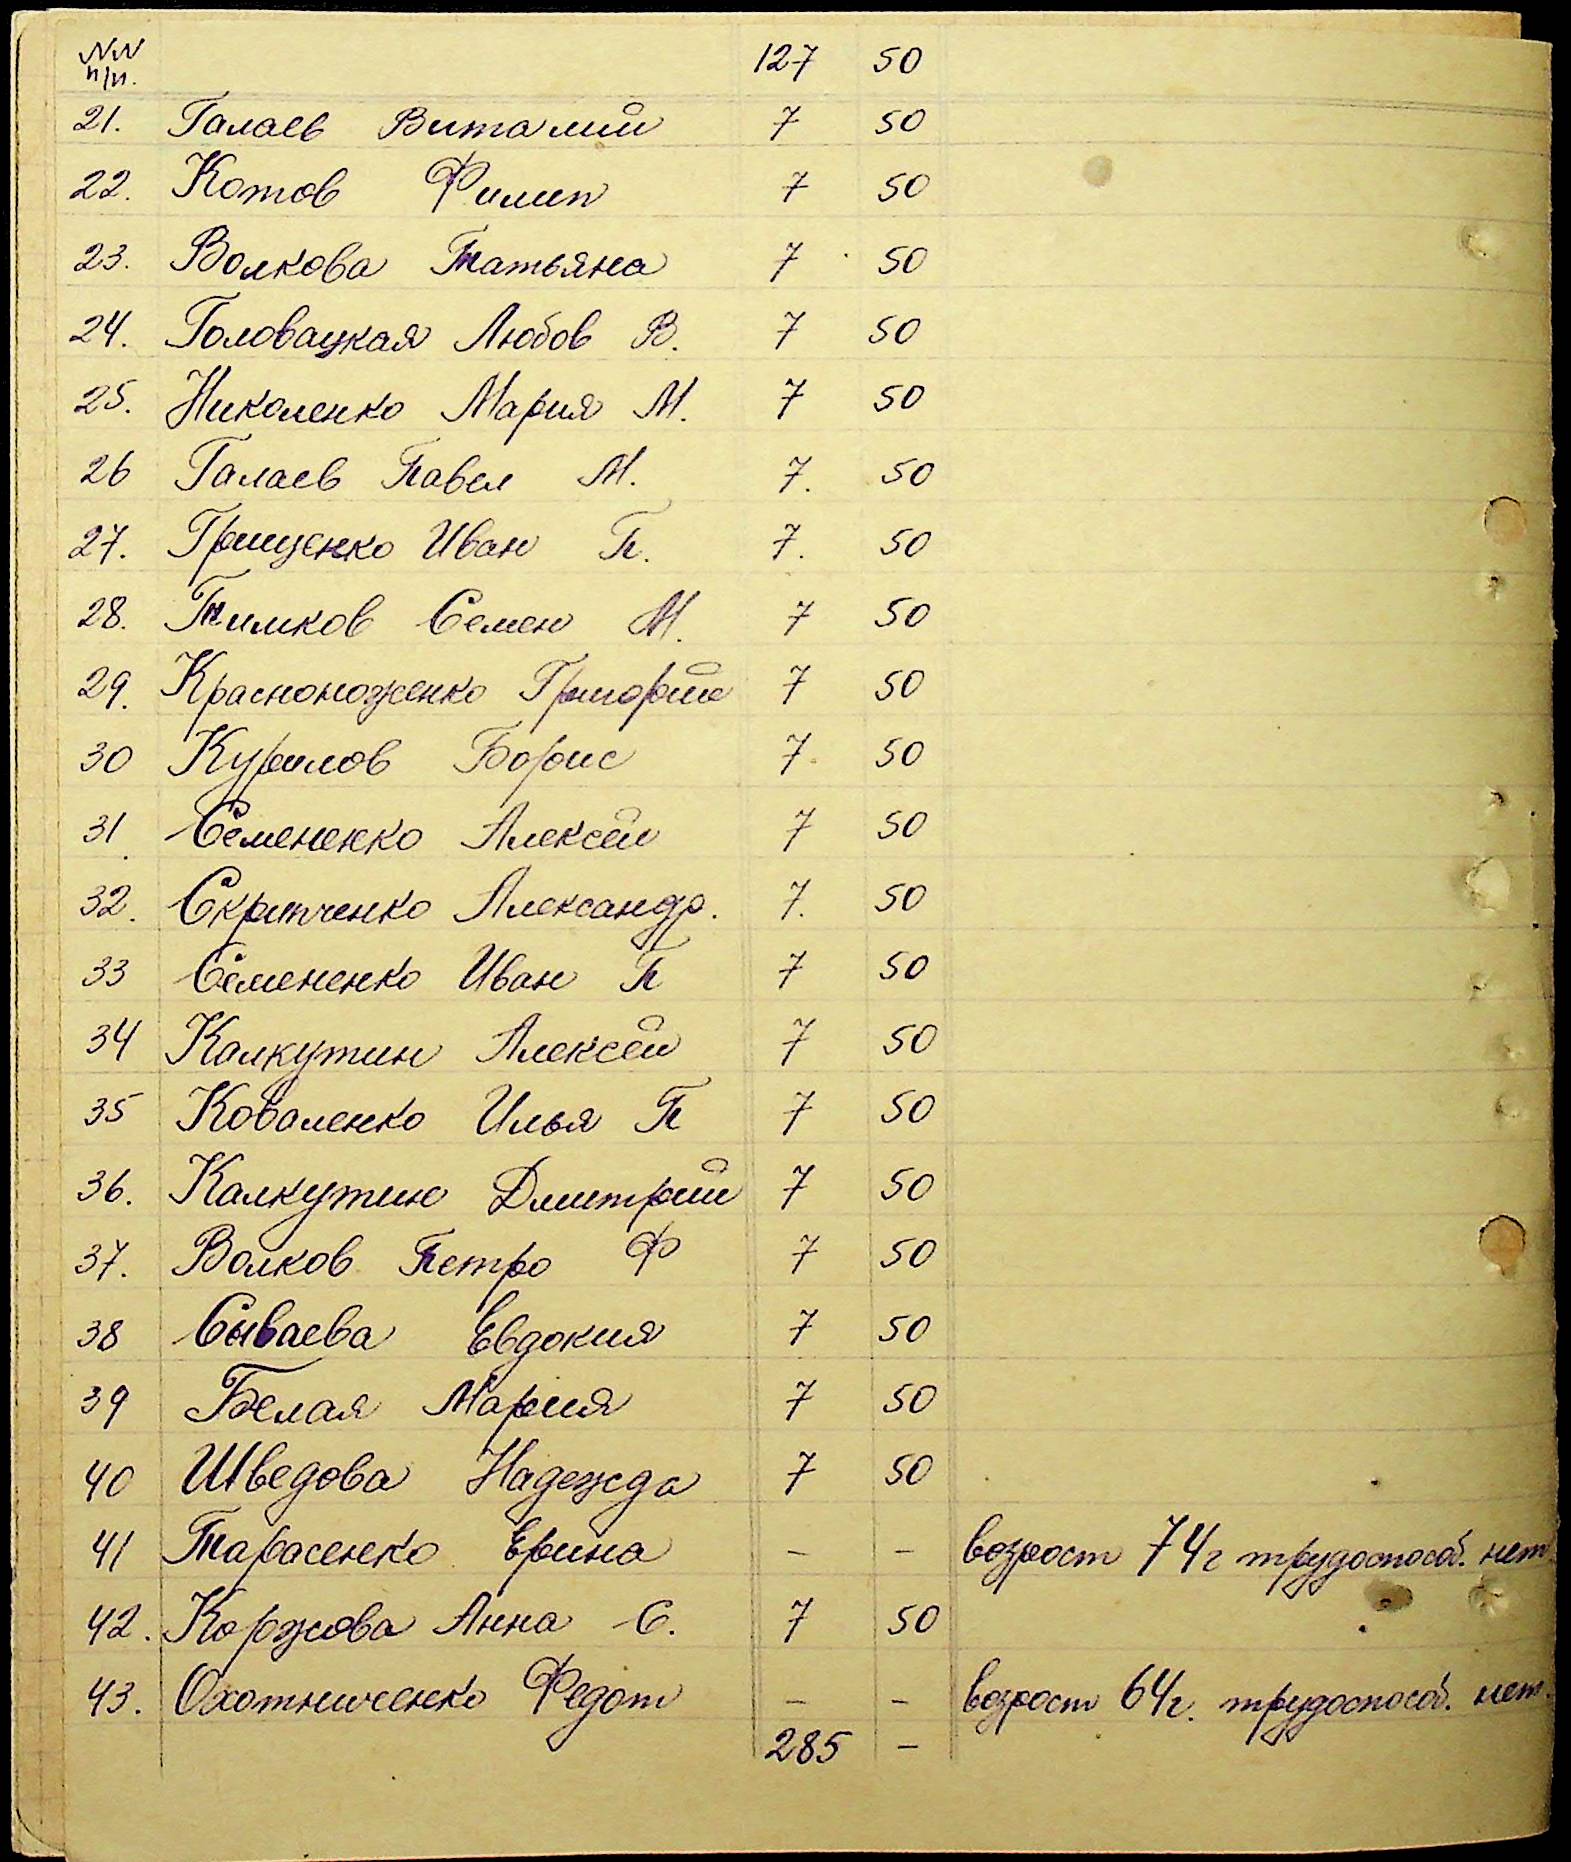 NN 127 50
п/п.
21. Галаев Виталий 7 50
22. Котов Филип 7 50
23. Волкова Татьяна 7 50
24. Головацкая Любов В. 7 50
25. Николенко Мария М. 7 50
26 Галаев Павел М. 7. 50
27. Грищенко Иван П. 7. 50
28. Тимков Семен М. 7 50
29. Красноноженко Григорий 7 50
30 Курилов Борис 7. 50
31. Семененко Алексей 7 50
32. Скрипченко Александр. 7. 50
33 Семененко Иван П 7 50
34 Калкутин Алексей 7 50
35 Коваленко Илья П 7 50
36. Калкутин Дмитрий 7 50
37. Волков Петро Ф 7 50
38 Сываева Евдокия 7 50
39 Белая Мария 7 50
40 Шведова Надежда 7 50
41 Тарасенко Ерина – – возраст 74г трудоспособ. нет
42. Коржова Анна С. 7 50
43. Охотниченко Федот – – возраст 64г. трудоспособ. нет.
285 –